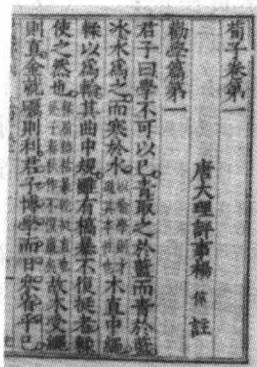 荀子卷第一
唐大理評事楊 倞 註
勸學篇第一
君子曰學不可以已青取之於藍而青於藍
冰水為之而寒於水以喻學則才過其本性也木直中繩
輮以為輪其曲中規雖有槁暴不復挺者輮
使之然也故木受繩
則直金就礪則利君子博學而日參省乎己